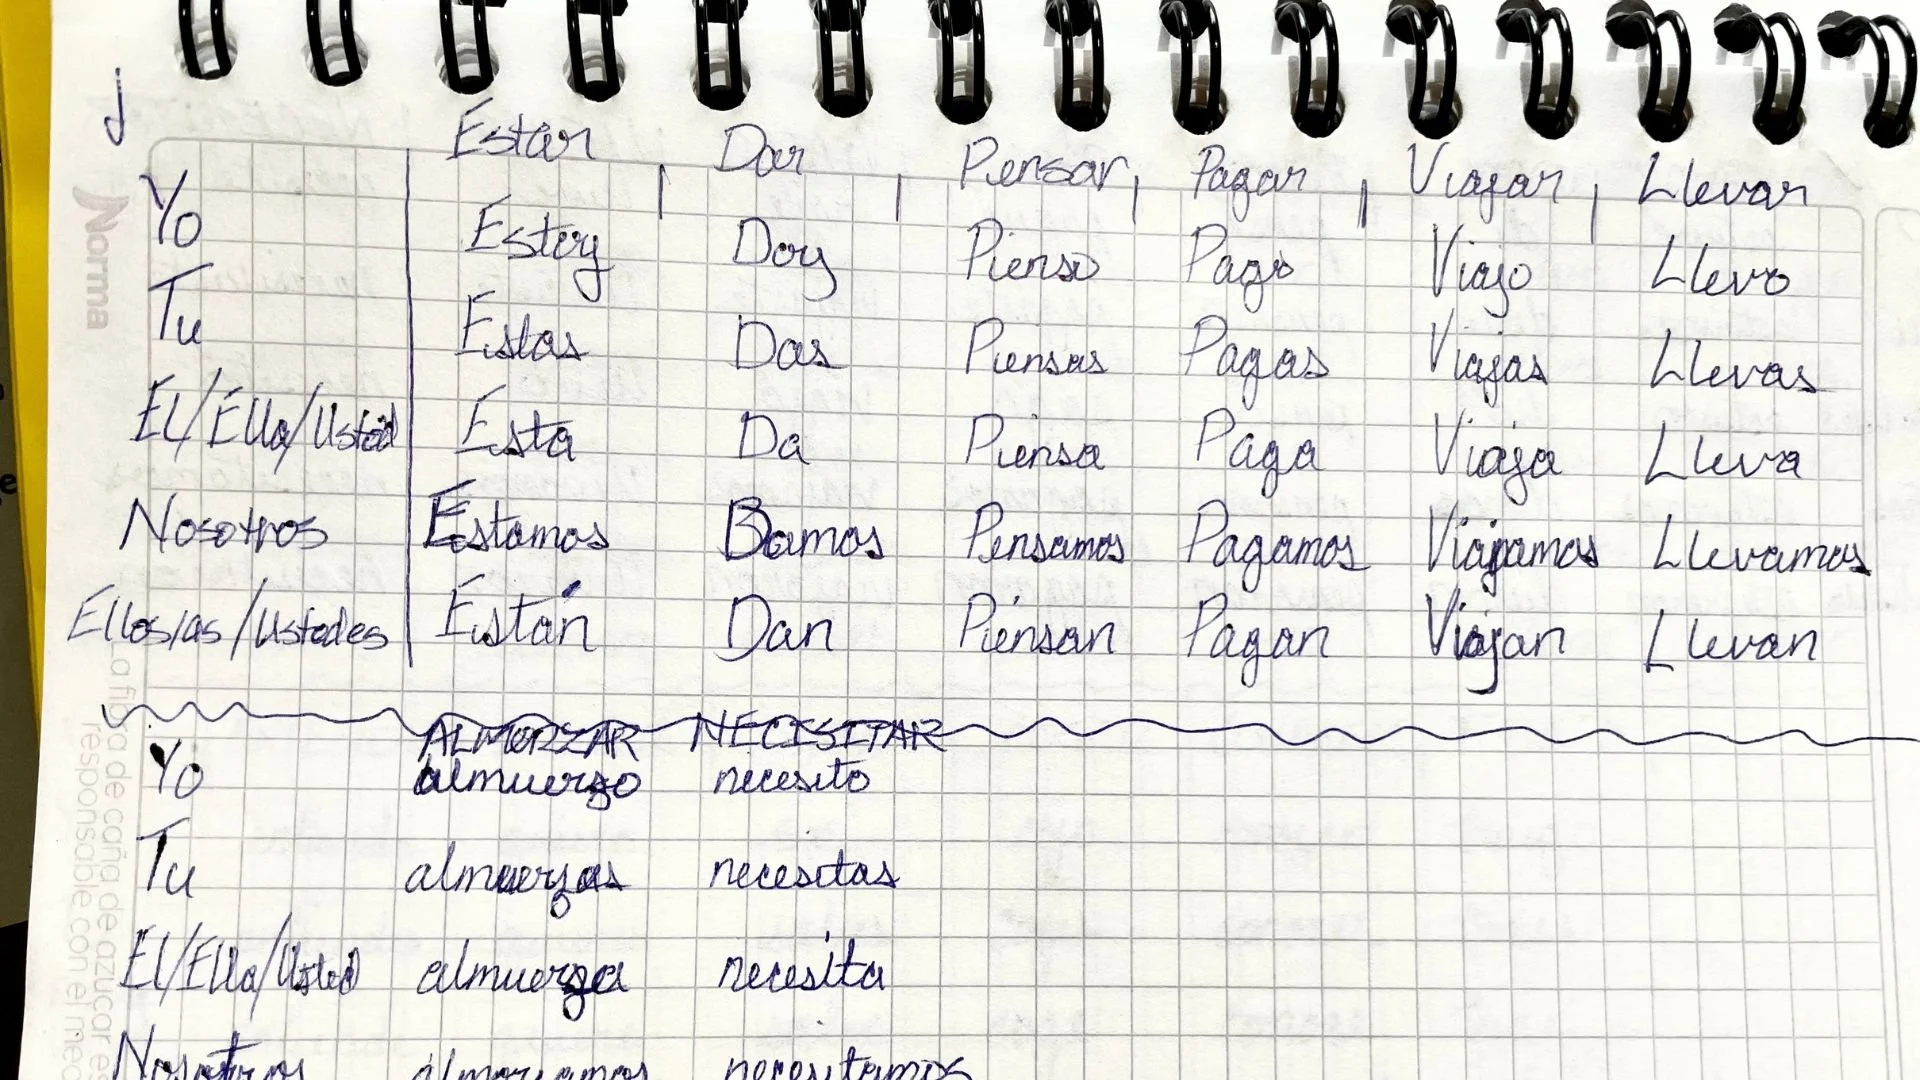 Estar Dar Pensar Pagar Viajar Llevar
Yo Estoy Doy Pienso Pago Viajo Llevo
Tu Estas Das Piensas Pagas Viajas Llevas
El/Ella/Usted Esta Da Piensa Paga Viaja Lleva
Nosotros Estamos Damos Pensamos Pagamos Viajamos Llevamos
Ellos/as/Ustedes Están Dan Piensan Pagan Viajan Llevan
ALMORZAR NECISITAR
Yo almuerzo necesito
Tu almuerzas necesitas
El/Ella/Usted almuerza necesita
Nosotros almorzamos necesitamos
Norma
La fibra de caña de azúcar es
responsable con el